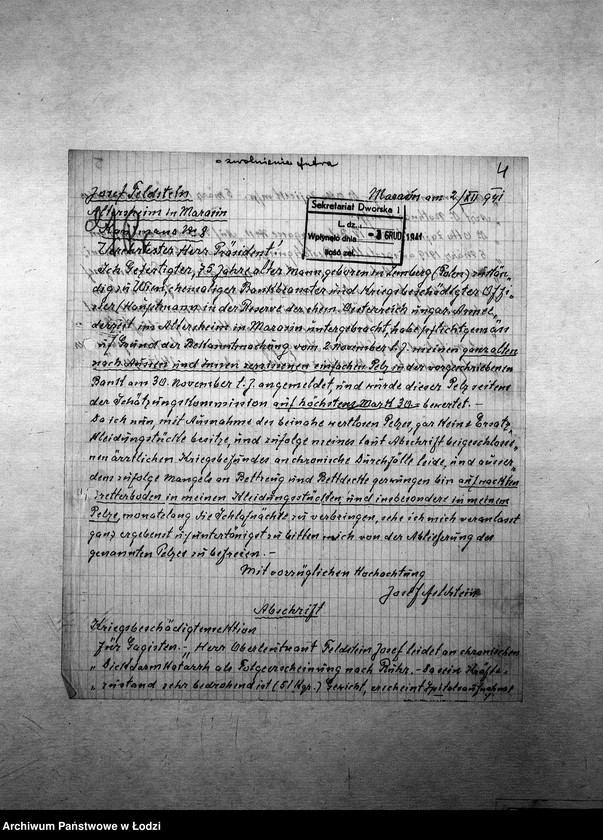 o zwolnienie futra
4
Josef Feldstein
Marasin am 2/XII 941
Altersheim in Marasin
Sekretariat Dworska 1
L. dz.
Wpłynęło dnia - 3 GRUD 1941
Ilość zał.
Verehrtester Herr Präsident!
Ich Gefertigter, 75 Jahre alter Mann, geboren in Lemberg (Polen) zustän-
dig zu Wien, ehemaliger Bankbeamter und Kriegsbeschädigter Offi-
zier (Hauptmann in der Reserve der ehem. Oesterreich ungar. Armee)
derzeit im Altersheim in Marasin untergebracht, habe pflichtgemäss
auf Grund der Bekanntmachung vom 2 November l. J. meinen ganz alten
nach Aussen und innen zerrissenen einfachen Pelz in der vorgeschriebenen
Bank am 30. November l. J. angemeldet und wurde dieser Pelz seitens
der Schätzungskommission auf höchstens Mark 30 = bewertet. -
Da ich nun, mit Ausnahme des beinahe wertlosen Pelzes, gar keine Ersatz-
kleidungsstücke besitze, und zufolge meines laut Abschrift beigeschlosse-
nen ärztlichen Kriegsbefundes an chronische Durchfälle leide, und ausser-
dem zufolge Mangels an Bettzeug und Bettdecke gezwungen bin auf nackten
Bretterboden in meinen Kleidungsstücken und insbesondere in meinem
Pelze, monatelang die Schlafnächte zu verbringen, sehe ich mich veranlasst
ganz ergebenst u. untertänigst zu bitten mich von der Ablieferung des
genannten Pelzes zu befreien. -
Mit vorzüglichen Hochachtung
Josef Feldstein
Abschrift
Kriegsbeschädigtensektion
für Gagisten. - Herr Oberleutnant Feldstein Josef leidet an chronischen
" Dickdarmkatarrh als Folgeerscheinung nach Ruhr. - Da sein Kräfte-
" zustand sehr bedrohend ist (51 Kgr.) Gewicht, erscheint Spitalsaufnahme
Archiwum Państwowe w Łodzi